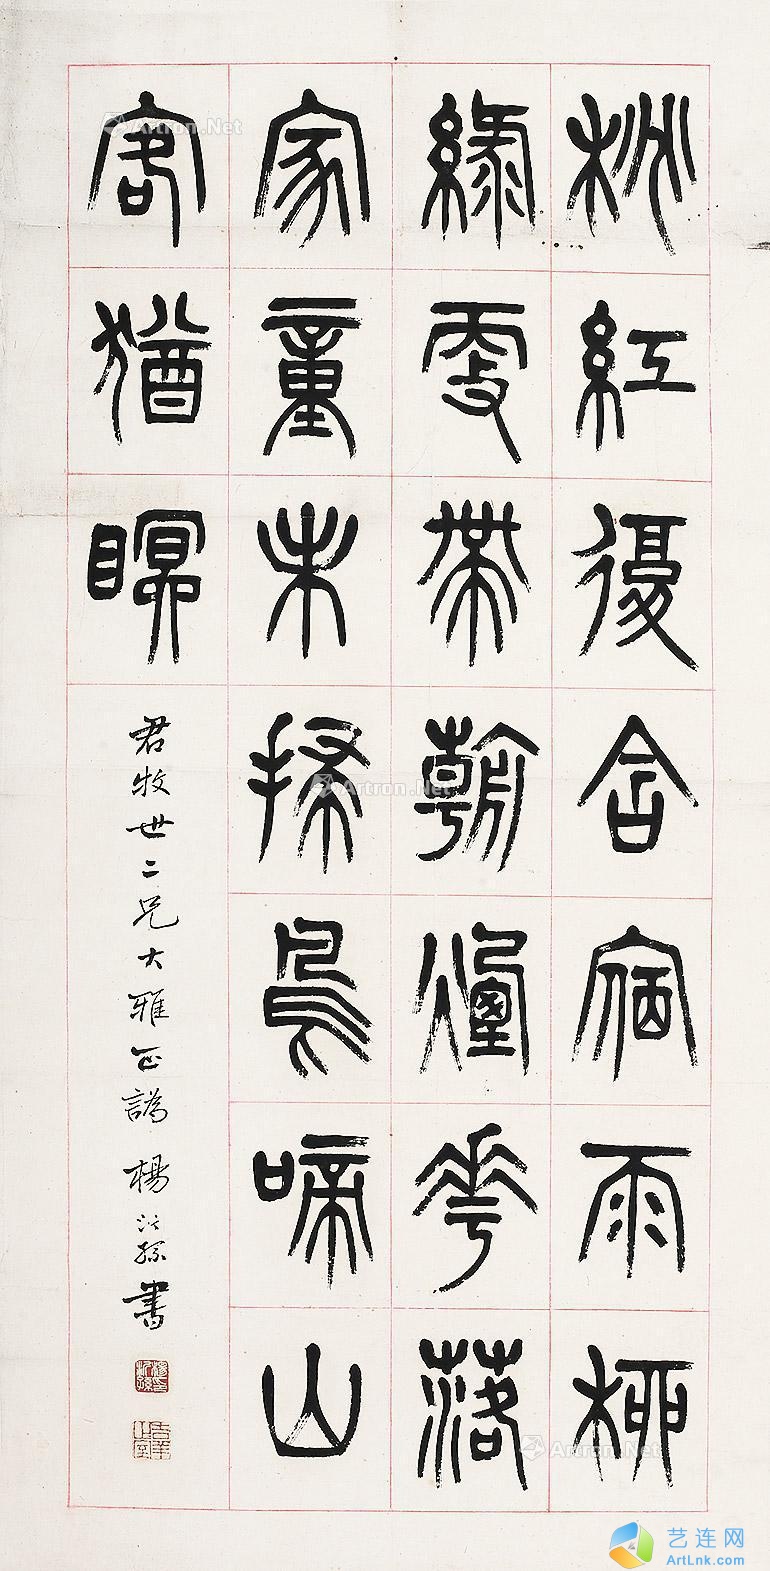 桃紅復含宿雨柳
綠更帶朝煙花落
家童未掃鳥啼山
客猶瞑
君牧世二兄大雅正譌 楊沂孫書
Artron.Net
Artron.Net
Artron.Net
艺连网
ArtLnk.com